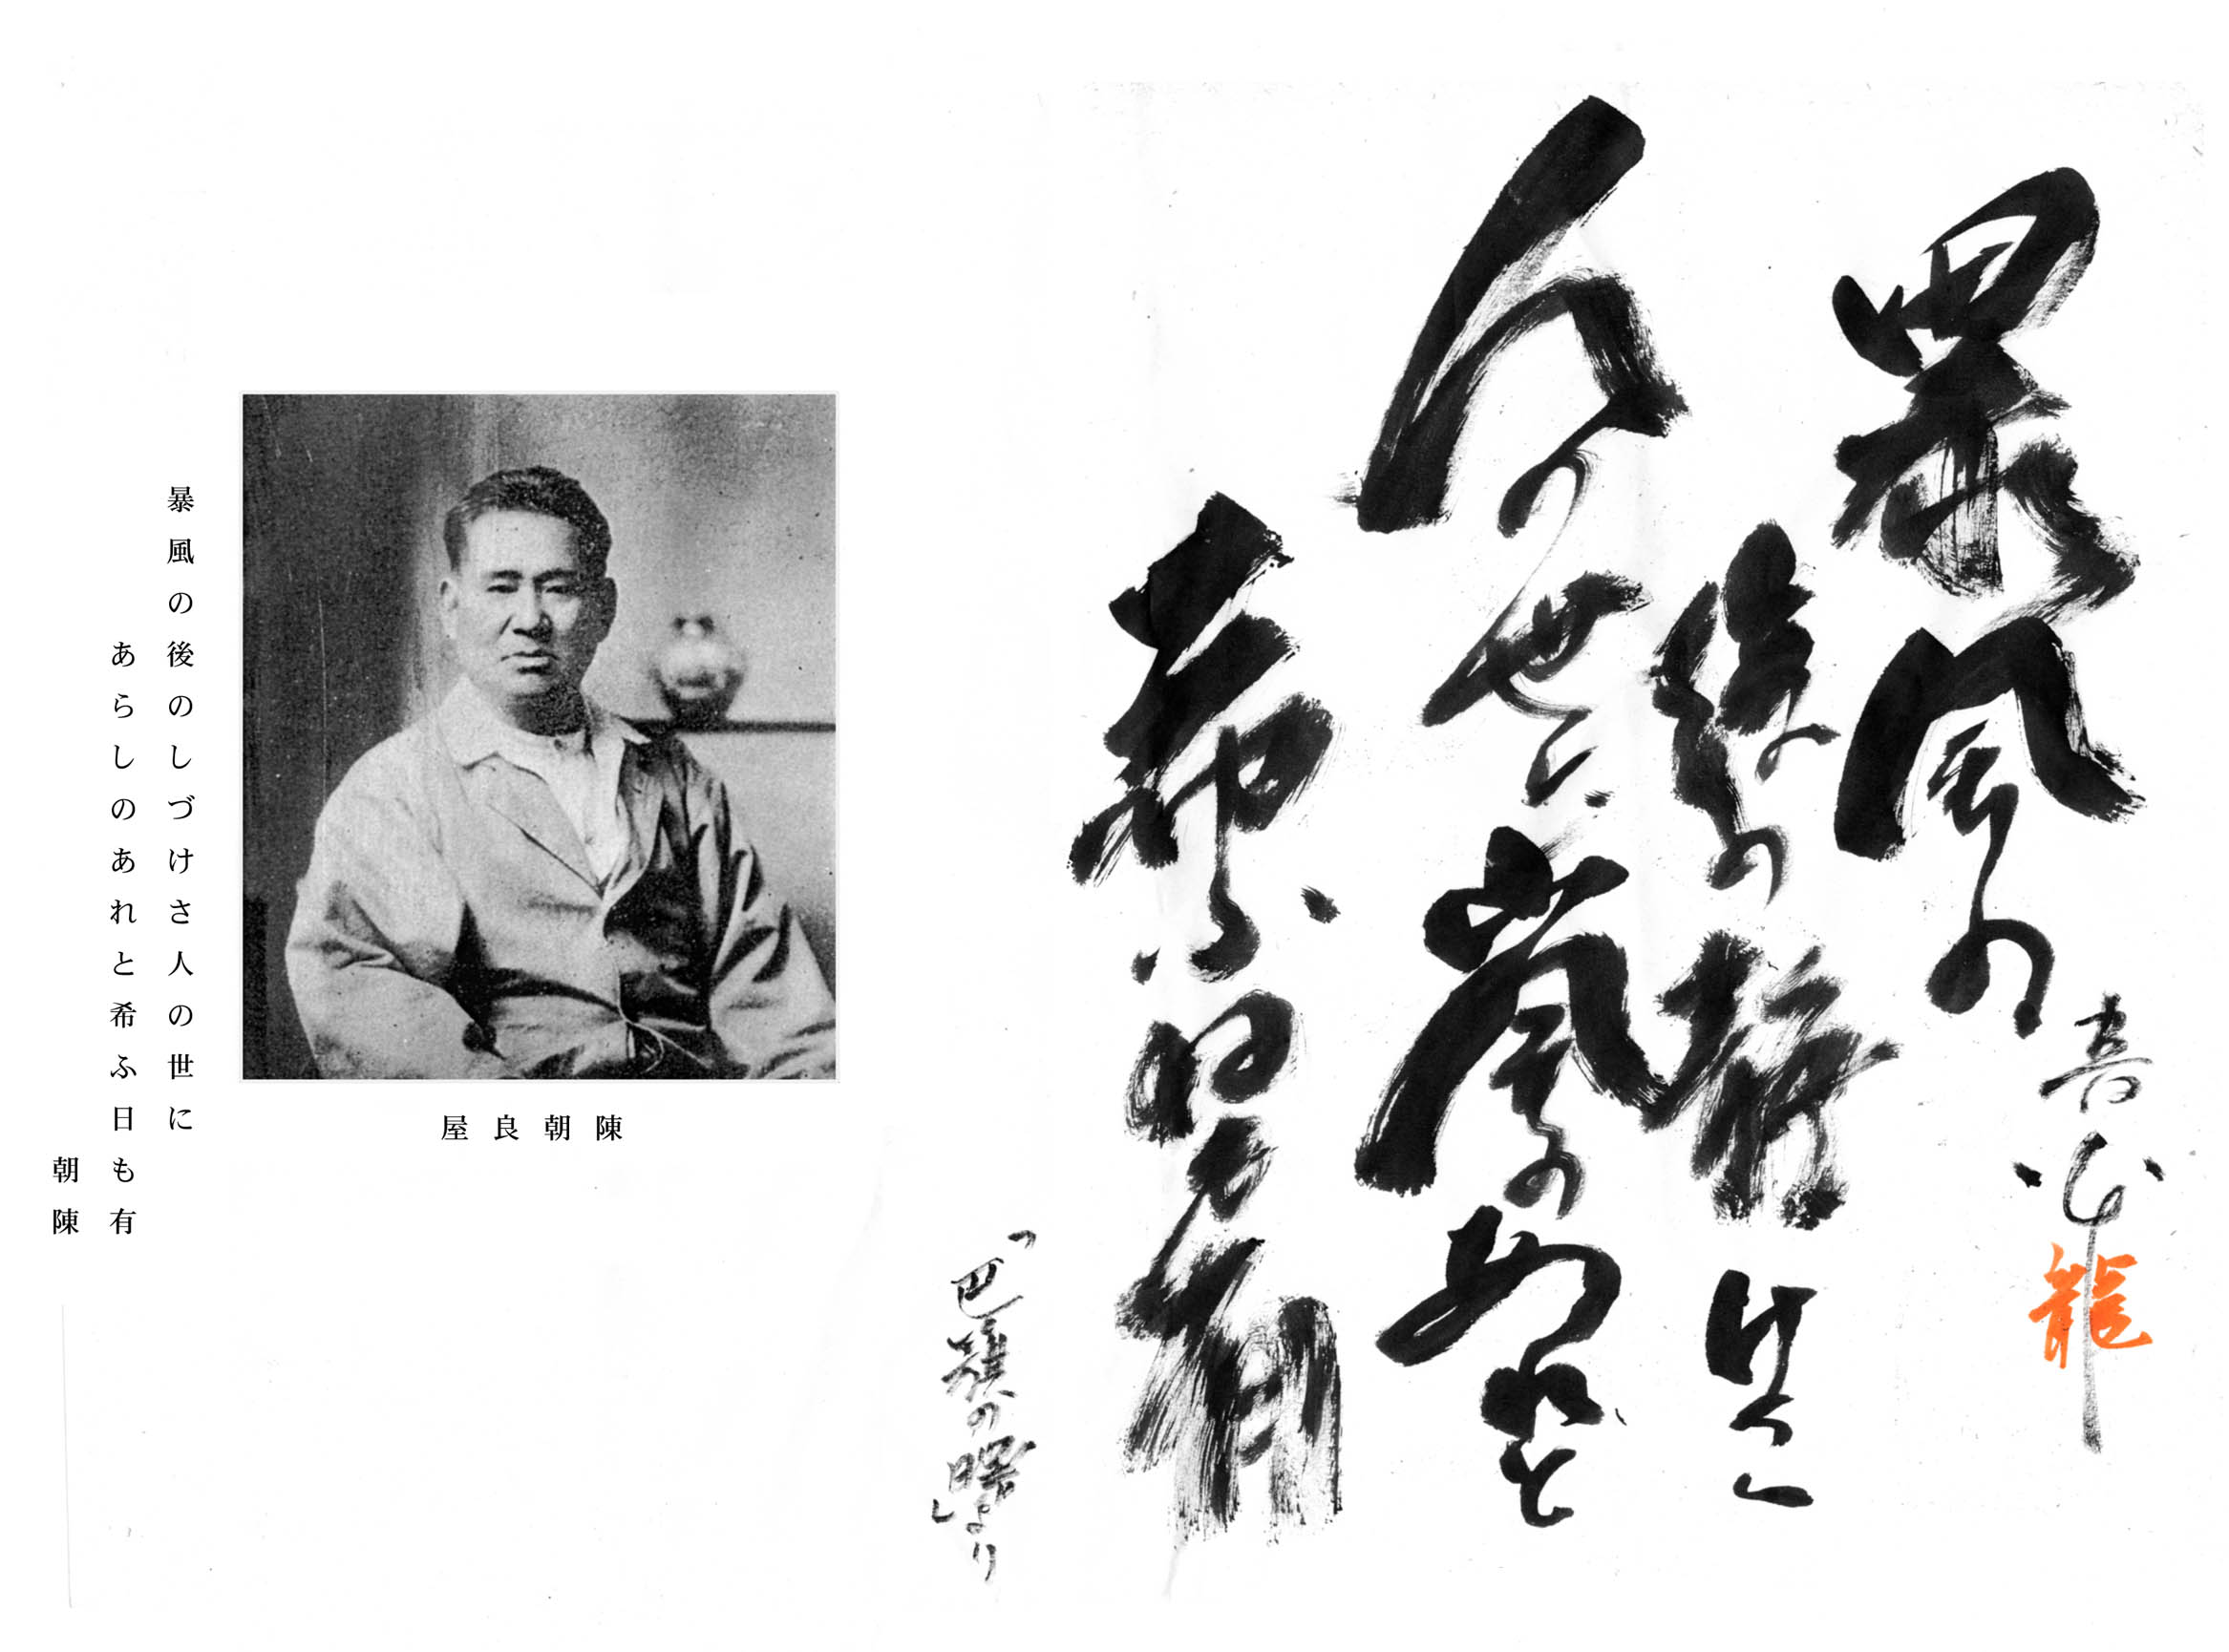 暴風の
龍
後の静けさ
人の世に嵐のあれと
希ふ日も有
「巴旗の曙」より
屋良朝陳
暴風の後のしづけさ人の世に
あらしのあれと希ふ日も有
朝陳